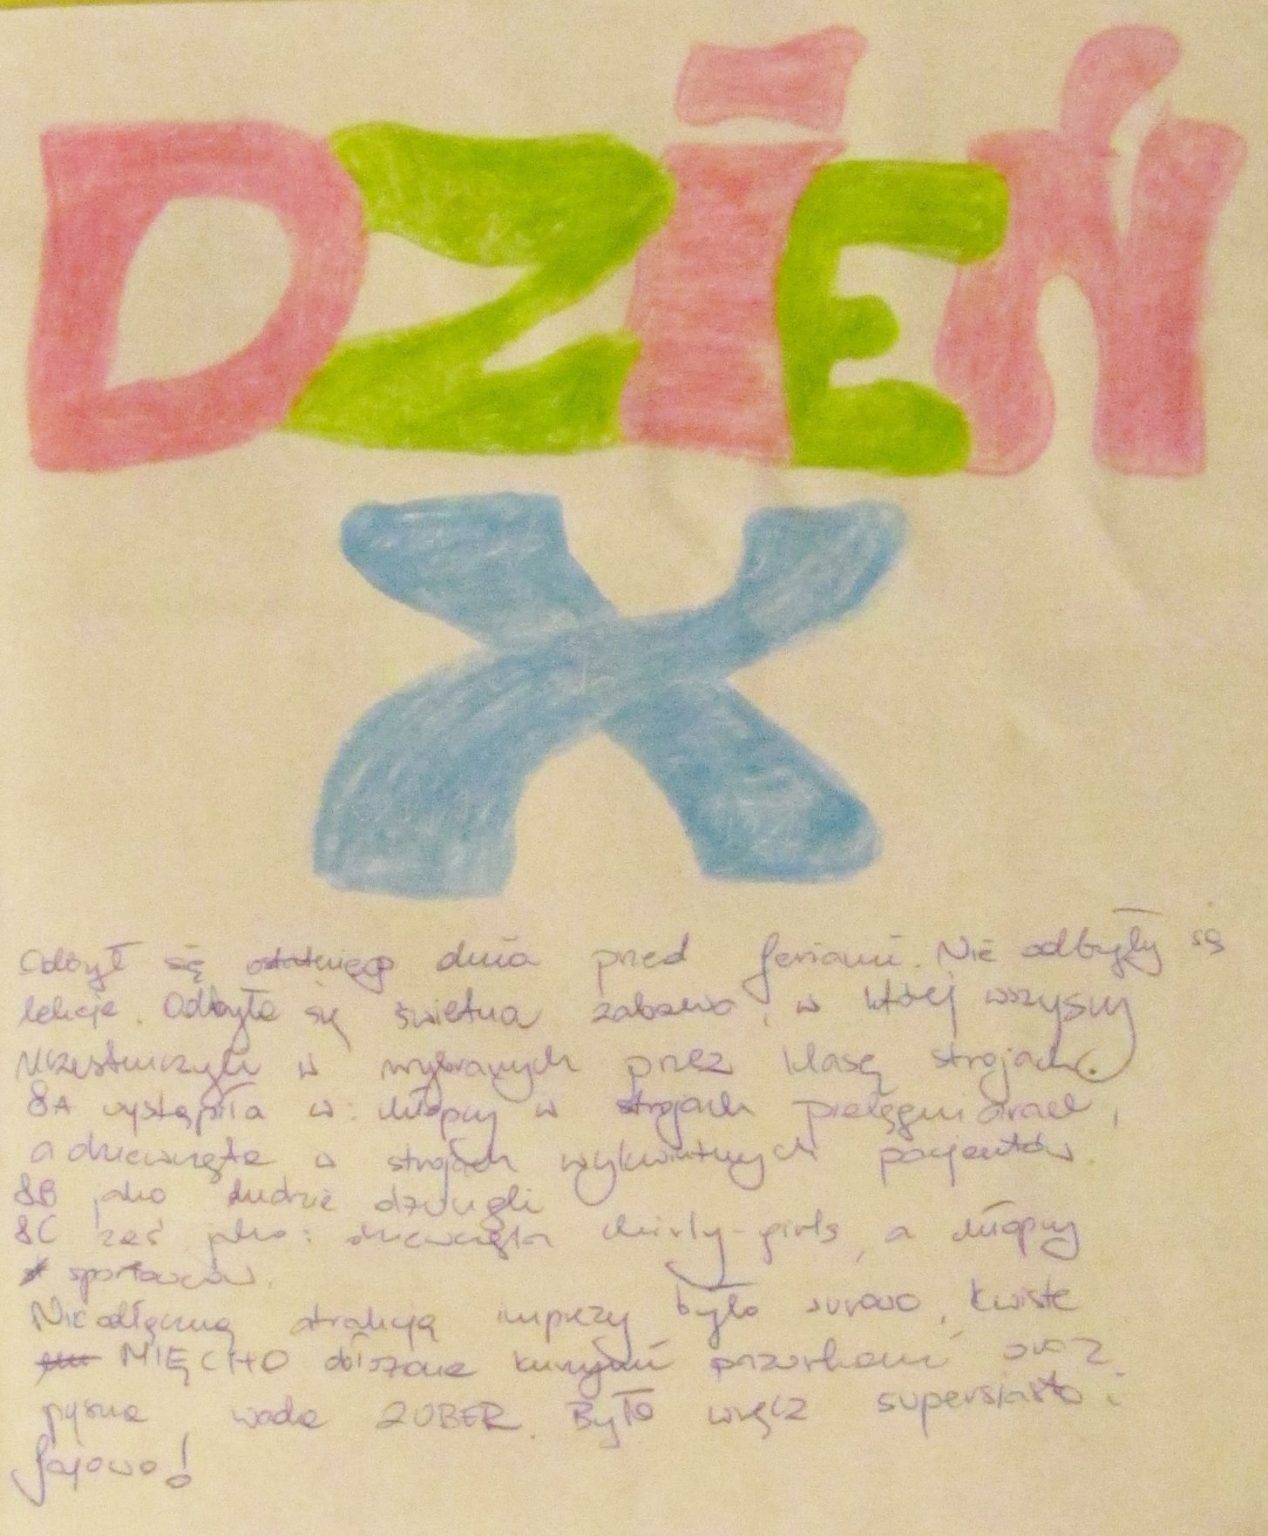 DZIEŃ
X
Odbył się ostatniego dnia przed feriami. Nie odbyły są
lekcje. Odbyła się świetna zabawa, w której wszyscy
uczestniczyli w wybranych przez klasę strojach.
8A wystąpiła w: chłopcy w strojach pielęgniarek,
a dziewczęta w strojach wykwintnych pacjentów.
8B jako ludzie dżungli
8C zaś jako: dziewczęta chirly-girls, a chłopcy
sportowców.
Nieodłączną atrakcją imprezy było surowe, krwiste
MIĘCHO obiszone kurzymi przurkami oraz
pyszna woda ZUBER. Było wręcz supersiasto i
fajowo!